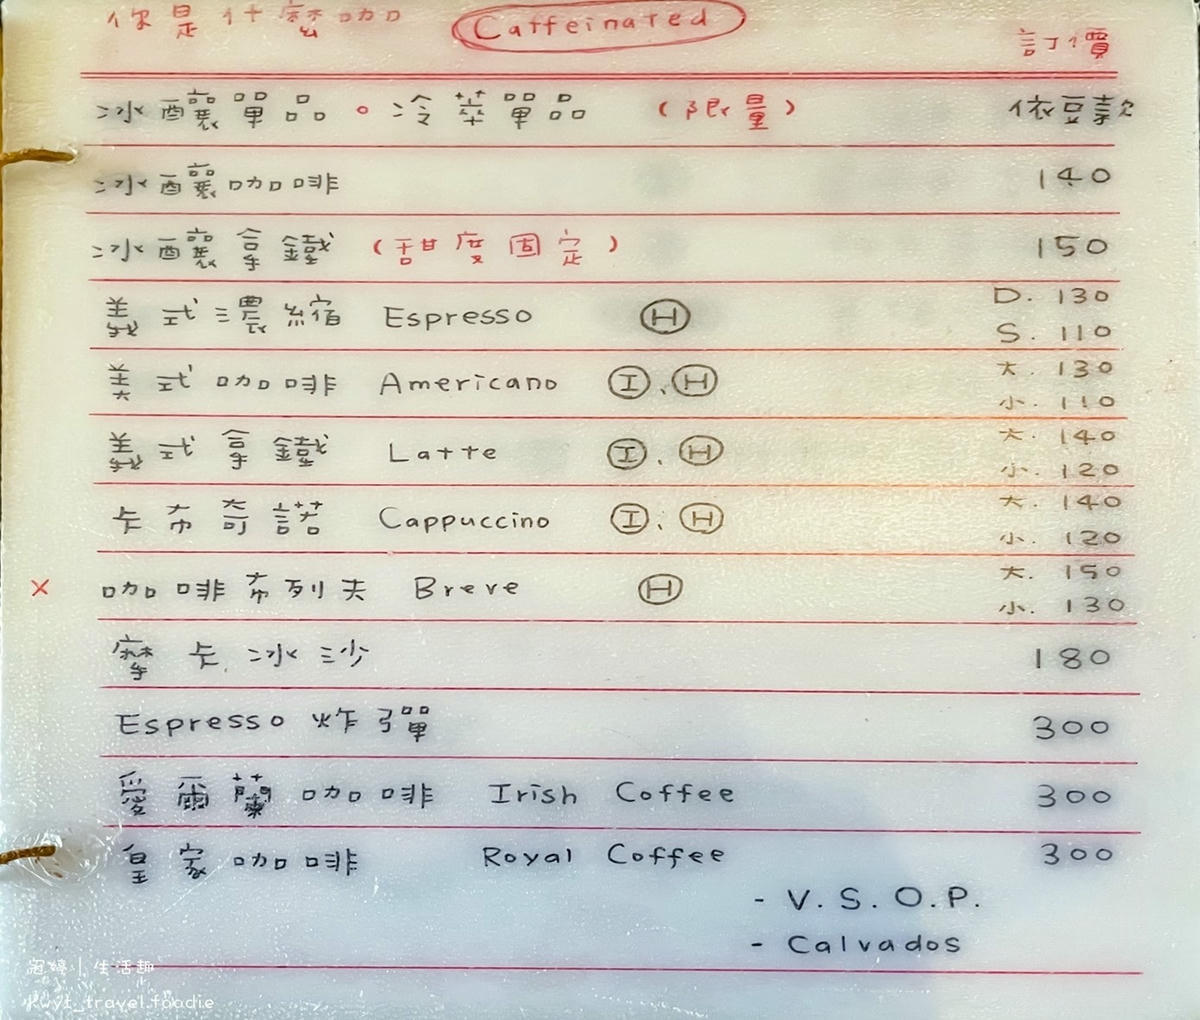 你是什麼咖 Caffeinated 訂價
冰釀單品。冷萃單品 (限量) 依豆款
冰釀咖啡 140
冰釀拿鐵 (甜度固定) 150
義式濃縮 Espresso Ⓗ D. 130
S. 110
美式咖啡 Americano Ⓘ、Ⓗ 大. 130
小. 110
義式拿鐵 Latte Ⓘ、Ⓗ 大. 140
小. 120
卡布奇諾 Cappuccino Ⓘ、Ⓗ 大. 140
小. 120
× 咖啡布列夫 Breve Ⓗ 大. 150
小. 130
摩卡冰沙 180
Espresso 炸彈 300
愛爾蘭咖啡 Irish Coffee 300
皇家咖啡 Royal Coffee 300
- V.S.O.P.
- Calvados
冠婷｜生活趣
kuyt_travel.foodie